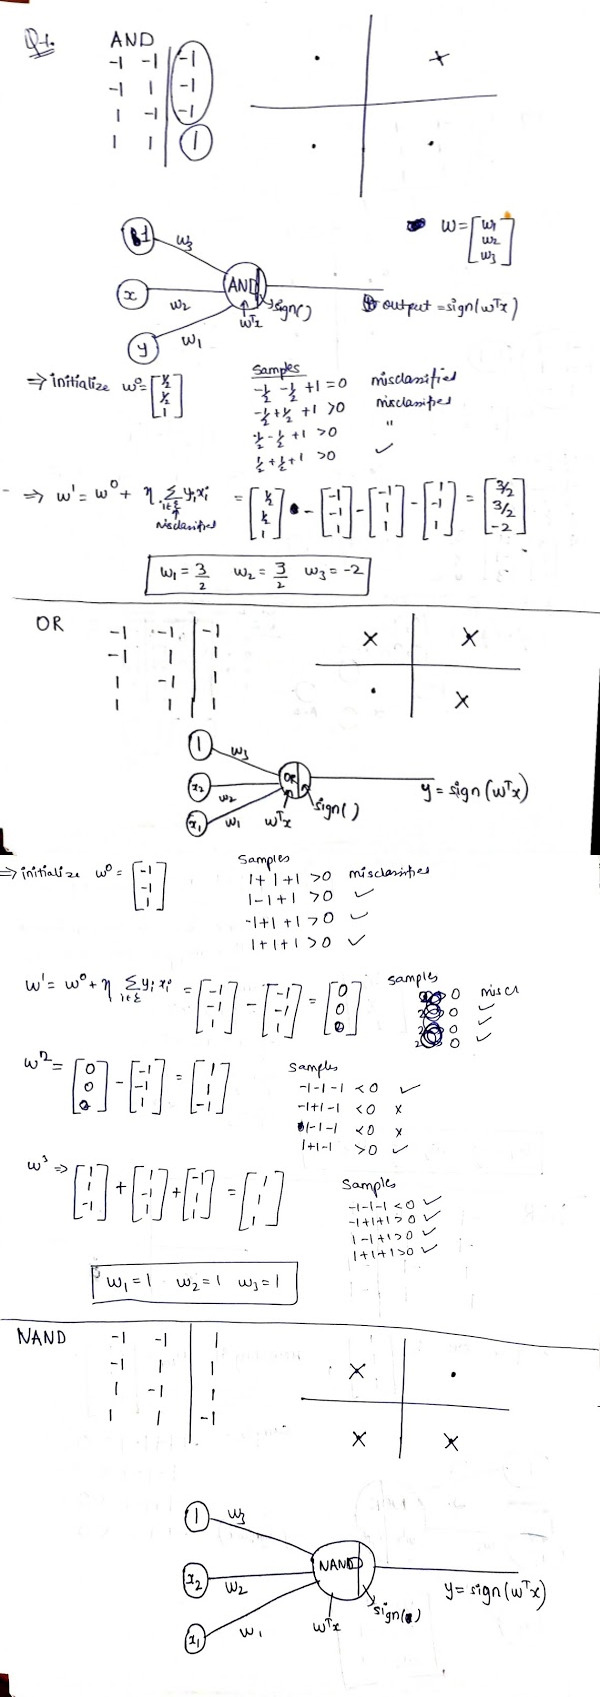 Q-1.
AND
-1 -1 | -1
-1 1 | -1
1 -1 | -1
1 1 | 1
1
w3
x
w2
y
w1
AND
sign()
wᵀx
w = [w1 w2 w3]
output = sign(wᵀx)
⇒ initialize w⁰ = [1/2 1/2 1]
Samples
-1/2 -1/2 +1 = 0 misclassified
-1/2 + 1/2 + 1 > 0 misclassified
1/2 - 1/2 + 1 > 0 "
1/2 + 1/2 + 1 > 0 ✓
⇒ w¹ = w⁰ + η Σ yᵢxᵢ = [1/2 1/2 1] - [-1 -1 1] - [-1 1 1] - [1 -1 1] = [3/2 3/2 -2]
i∈ξ
misclassified
w1 = 3/2 w2 = 3/2 w3 = -2
OR
-1 -1 | -1
-1 1 | 1
1 -1 | 1
1 1 | 1
1
w3
x2
w2
x1
w1
OR
wᵀx
sign()
y = sign(wᵀx)
⇒ initialize w⁰ = [-1 -1 1]
Samples
1+1+1 > 0 misclassified
1-1+1 > 0 ✓
-1+1+1 > 0 ✓
1+1+1 > 0 ✓
w¹ = w⁰ + η Σ yᵢxᵢ = [-1 -1 1] - [-1 -1 1] = [0 0 0]
i∈ξ
Samples
0 miscl
0 ✓
0 ✓
0 ✓
w² = [0 0 0] - [-1 -1 1] = [1 1 -1]
Samples
-1-1-1 < 0 ✓
-1+1-1 < 0 x
1-1-1 < 0 x
1+1-1 > 0 ✓
w³ ⇒ [1 1 -1] + [1 -1 1] + [-1 1 1] = [1 1 1]
Samples
-1-1-1 < 0 ✓
-1+1+1 > 0 ✓
1-1+1 > 0 ✓
1+1+1 > 0 ✓
w1 = 1 w2 = 1 w3 = 1
NAND
-1 -1 | 1
-1 1 | 1
1 -1 | 1
1 1 | -1
1
w3
x2
w2
x1
w1
NAND
wᵀx
sign()
y = sign(wᵀx)